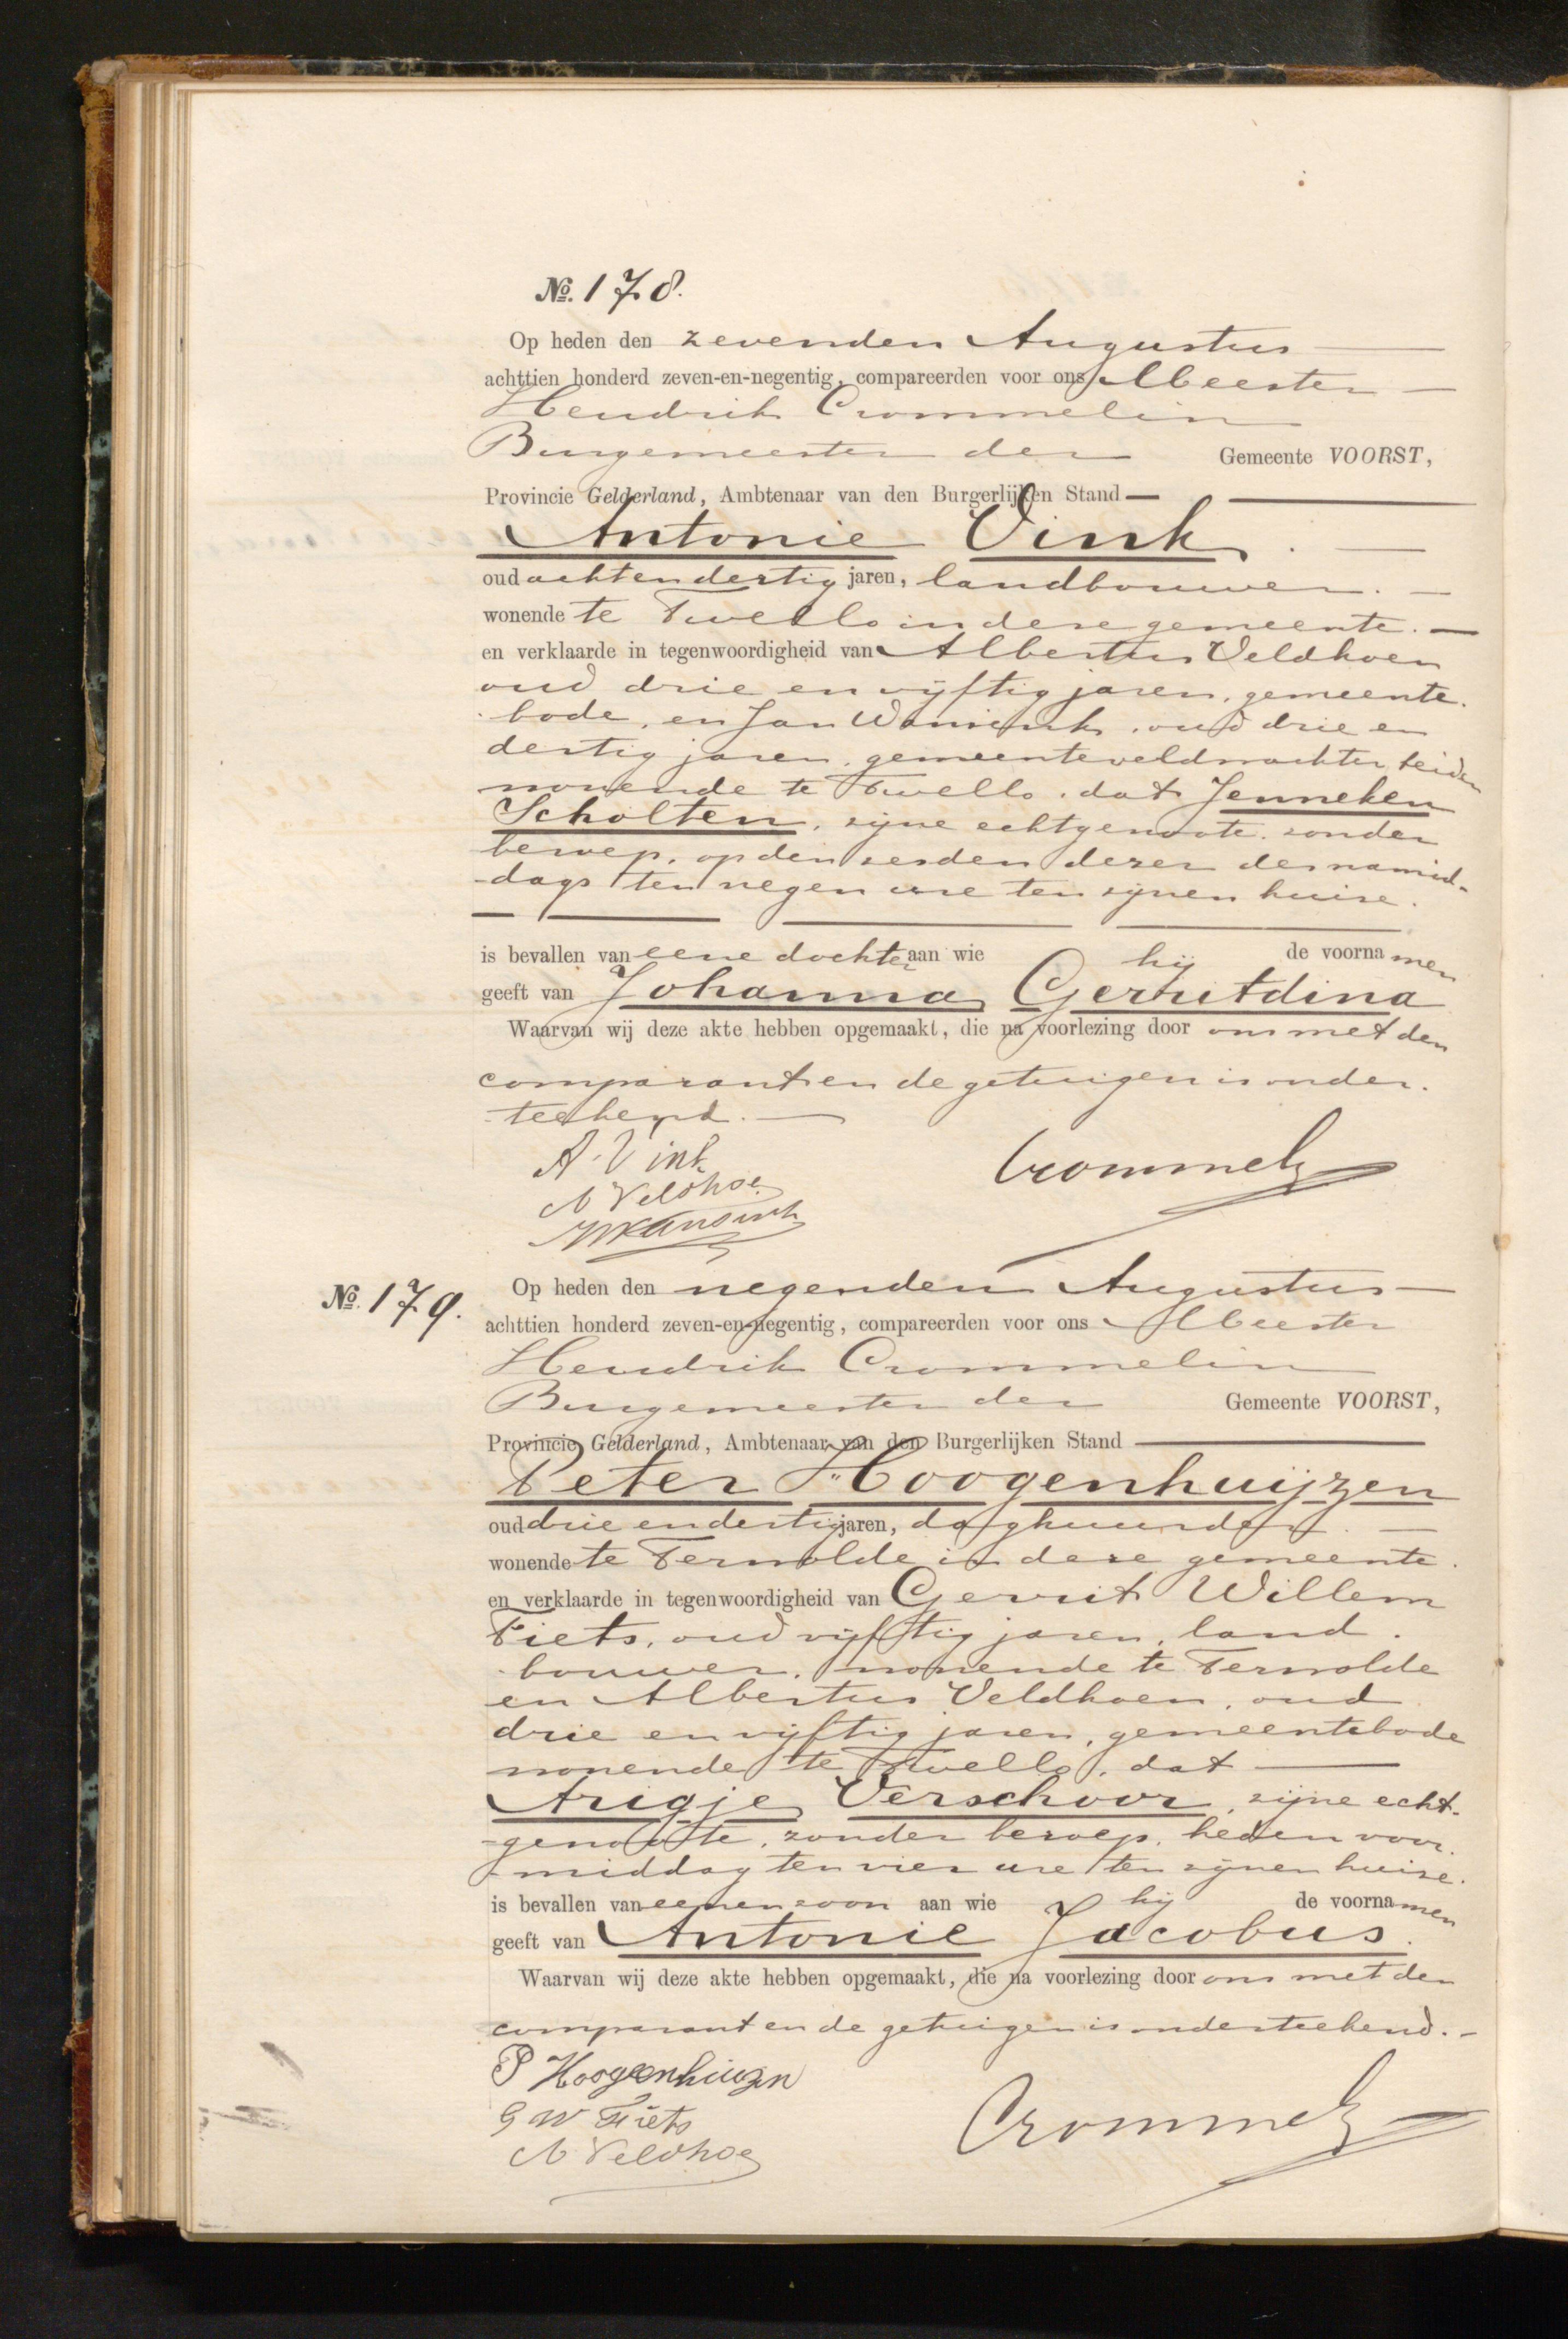 No. 178.
Op heden den zevenden Augustus
achttien honderd zeven-en-negentig, compareerden voor ons Meester
Hendrik Crommelin
Burgemeester der Gemeente VOORST,
Provincie Gelderland, Ambtenaar van den Burgerlijken Stand
Antonie Vink.
oud acht en dertig jaren, landbouwer.
wonende te Twello in deze gemeente.
en verklaarde in tegenwoordigheid van Albertus Veldhoen
oud drie en vijftig jaren, gemeente-
bode, en Jan oud drie en
dertig jaren, gemeenteveldwachter, beiden
wonende te Twello, dat Jenneken
Scholten, zijne echtgenoote, zonder
beroep, op den zesden dezer des namid-
-dags ten negen ure ten zijnen huize.
is bevallen van eene dochter aan wie hij de voornamen
geeft van Johanna Gerritdina
Waarvan wij deze akte hebben opgemaakt, die na voorlezing door ons met den
comparant en de getuigen is onder-
-teekend.
A. Vink
A Veldhoe
Crommel
No. 179.
Op heden den negenden Augustus
achttien honderd zeven-en-negentig, compareerden voor ons Meester
Hendrik Crommelin
Burgemeester der Gemeente VOORST,
Provincie Gelderland, Ambtenaar van den Burgerlijken Stand
Peter Hoogenhuijzen
oud drie en dertig jaren, daghuurder.
wonende te Terwolde in deze gemeente.
en verklaarde in tegenwoordigheid van Gerrit Willem
Fiets, oud vijftig jaren, land-
-bouwer, wonende te Terwolde
en Albertus Veldhoen, oud
drie en vijftig jaren, gemeentebode
wonende te Twello, dat
Arigje Verschoor, zijne echt-
-genoote, zonder beroep, heden voor-
-middag ten vier ure ten zijnen huize.
is bevallen van eenen zoon aan wie hij de voornamen
geeft van Antonie Jacobus.
Waarvan wij deze akte hebben opgemaakt, die na voorlezing door ons met den
comparant en de getuigen is onderteekend.
P Hoogenhuizn
G W Fiets
A Veldhoe
Crommel